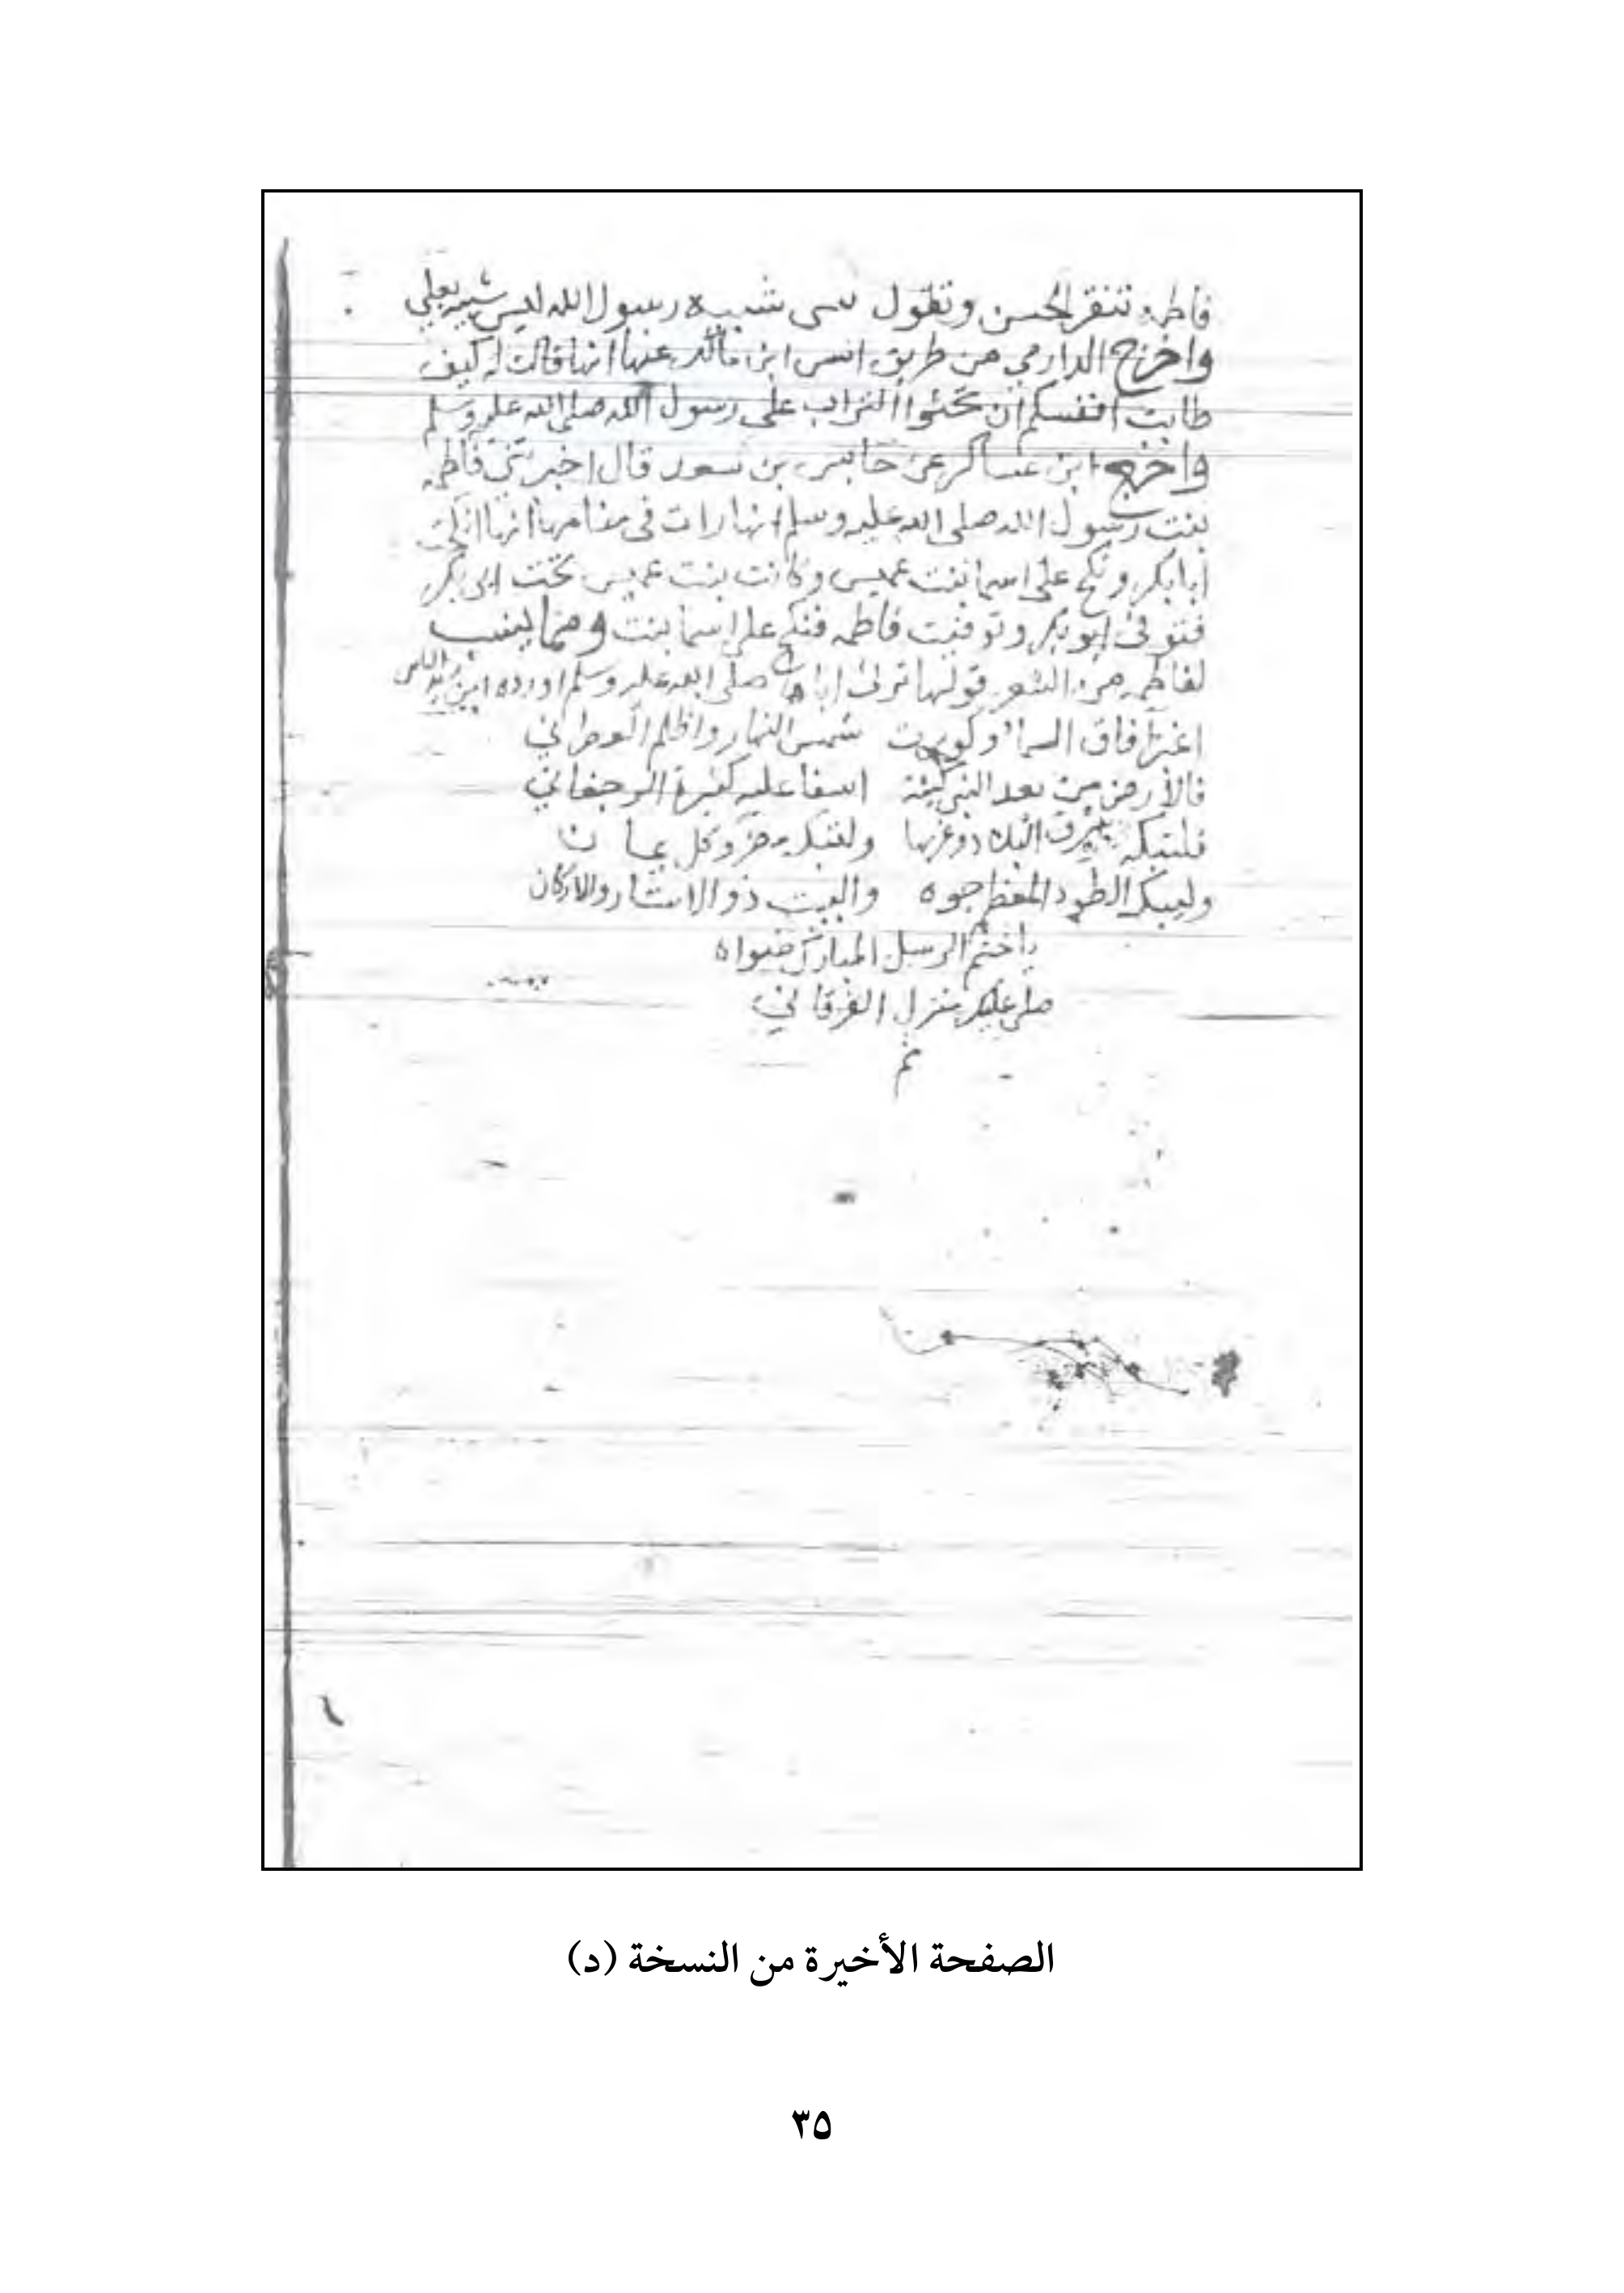 فاطمة تنقر للحسن وتقول شبيه رسول الله ليس شبيه بعلي
واخرج الدارمي من طريق انس ابن مالك عنها انها قالت له كيف
طابت انفسكم ان تحثوا التراب على رسول الله صلى الله عليه وسلم
واخرج ابن عساكر عن حابس بن سعد قال اخبرتني فاطمه
بنت رسول الله صلى الله عليه وسلم انها رات في منامها انها
ابابكر ونكح علي اسما بنت عميس وكانت بنت عميس تحت ابي بكر
فتوفى ابوبكر وتوفيت فاطمه فنكح علي اسما بنت ومما ينسب
لفاطمه من الشعر قولها ترثى اباها صلى الله عليه وسلم اورده ابن
اغبر آفاق السماء وكورت شمس النهار واظلم
فالارض من بعد النبي كئيبة اسفا عليه كثيرة الرجفاني
فلتبكه البلاد وغربها ولتبكه وكل يمان
وليبكه الطود المعظم جوه والبيت ذو الاستار والاركان
يا ختم الرسل المبارك ضواه
صلى عليك منزل الفرقاني
تم
الصفحة الأخيرة من النسخة (د)
٣٥